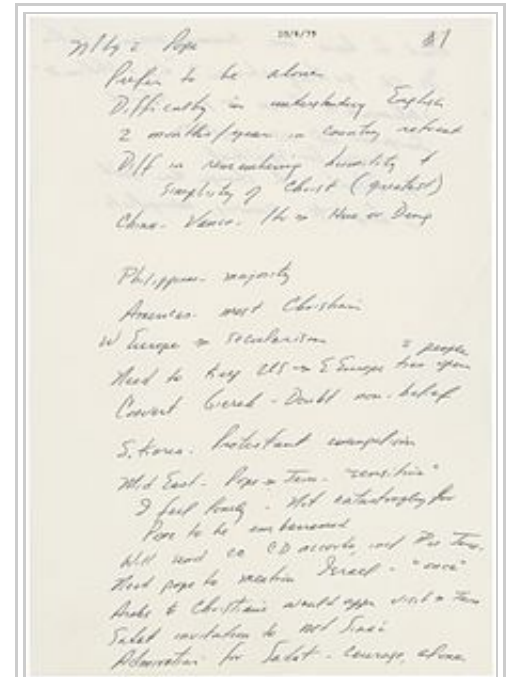 10/6/79
#1
Mtg c Pope
Prefer to be alone
Difficulty in understanding English
2 months/year in country retreat
Diff in remembering humility &
simplicity of Christ (greatest)
China - Vance - Hua or Deng
Philippines - majority
Americas - most Christian
W Europe → secularism
Need to keep US → E Europe open
c people
Convert - Doubt non-belief
S. Korea - Protestant
Mid East - Pope "sensitive"
I feel - Not for
Pope to be embarrassed
Will send CD accords,
Need pope to mention Israel - "once"
Arabs & Christians would visit
Sadat invitation to Mt Sinai
Admiration for Sadat - courage, alone